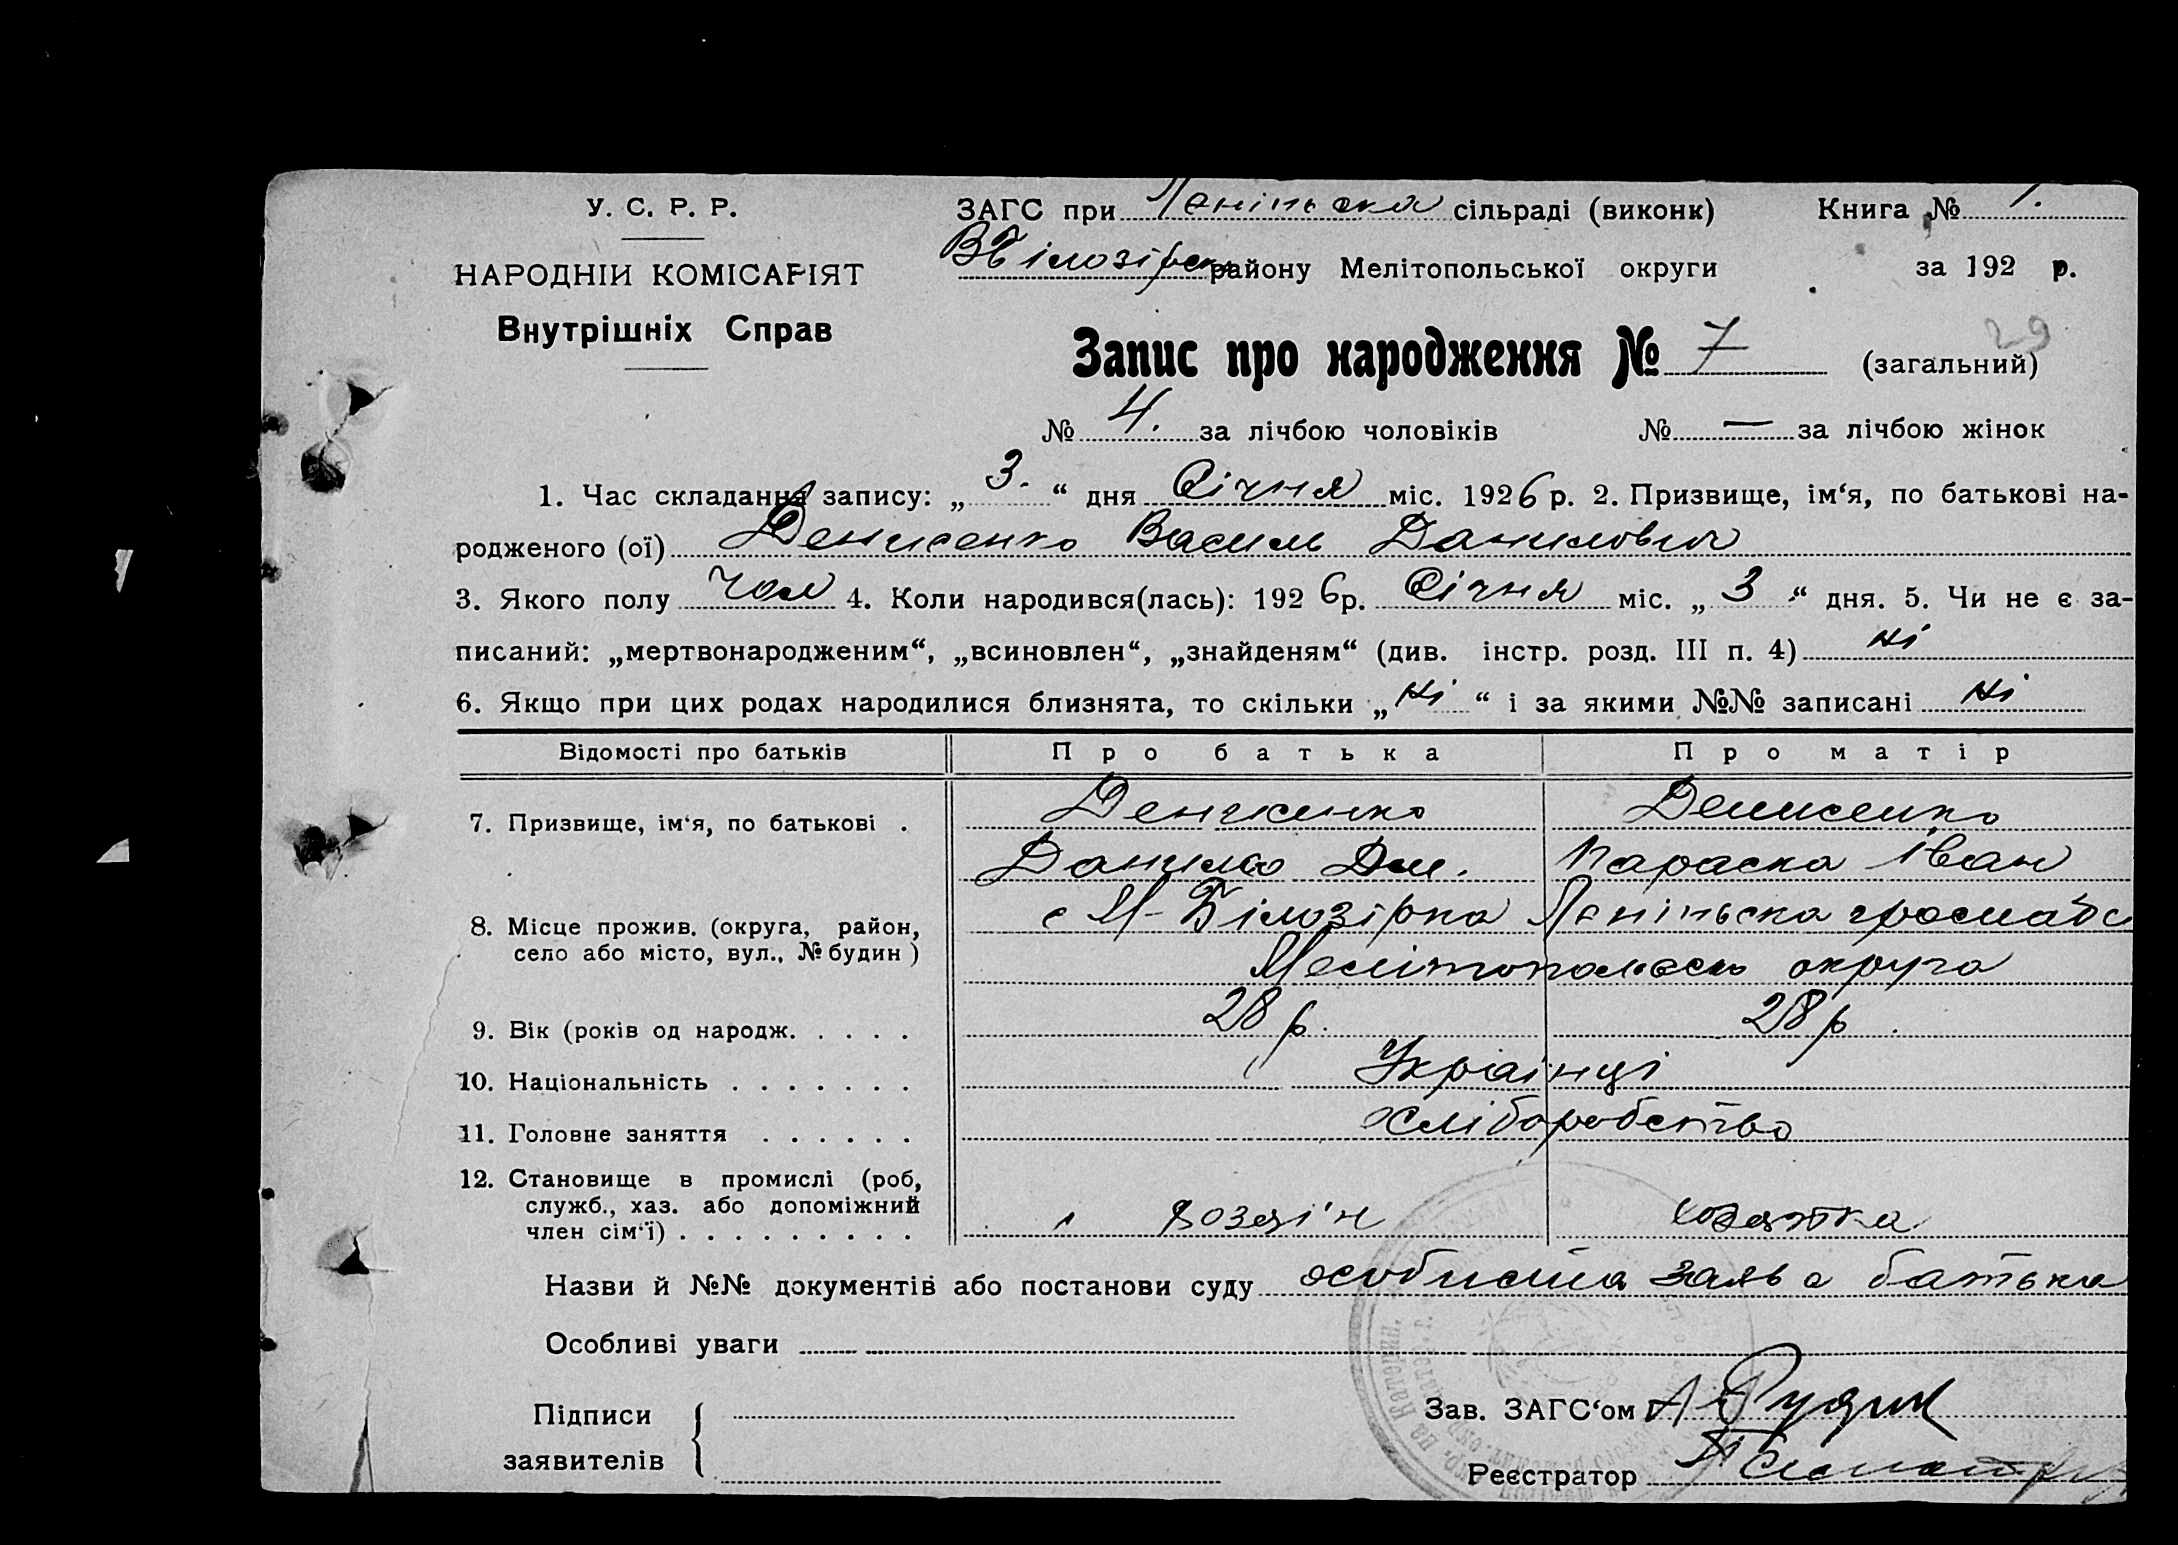 У. С. Р. Р.
НАРОДНІЙ КОМІСАРІЯТ
Внутрішніх Справ
ЗАГС при Ленінська сільраді (виконк) Книга № 1.
ВБілозірськ району Мелітопольської округи за 192 р.
Запис про народження № 7 (загальний)
29
№ 4. за лічбою чоловіків № — за лічбою жінок
1. Час складання запису: „ 3. “ дня Січня міс. 1926 р. 2. Призвище, ім‘я, по батькові на-
родженого (ої) Денисенко Василь Данилович
3. Якого полу чол 4. Коли народився(лась): 1926р. Січня міс. „ 3 “ дня. 5. Чи не є за-
писаний: „мертвонародженим“, „всиновлен“, „знайденям“ (див. інстр. розд. III п. 4) ні
6. Якщо при цих родах народилися близнята, то скільки „ ні “ і за якими №№ записані ні
Відомості про батьків Про батька Про матір
7. Призвище, ім‘я, по батькові . Денисенко Денисенко
Данило Дм. Параска Іван
8. Місце прожив. (округа, район, село або місто, вул., № будин) с М-Білозірка Ленінська громадс
Мелітопольськ округа
9. Вік (років од народж. . . . . 28 р. 28 р.
10. Національність . . . . . . . Українці
11. Головне заняття . . . . . . хліборобство
12. Становище в промислі (роб,
служб., хаз. або допоміжний
член сім‘ї) . . . . . . . . . хозяїн
Назви й №№ документів або постанови суду особиста заява батька
Особливі уваги
Підписи
заявителів
Зав. ЗАГС‘ом А Рудик
Реєстратор